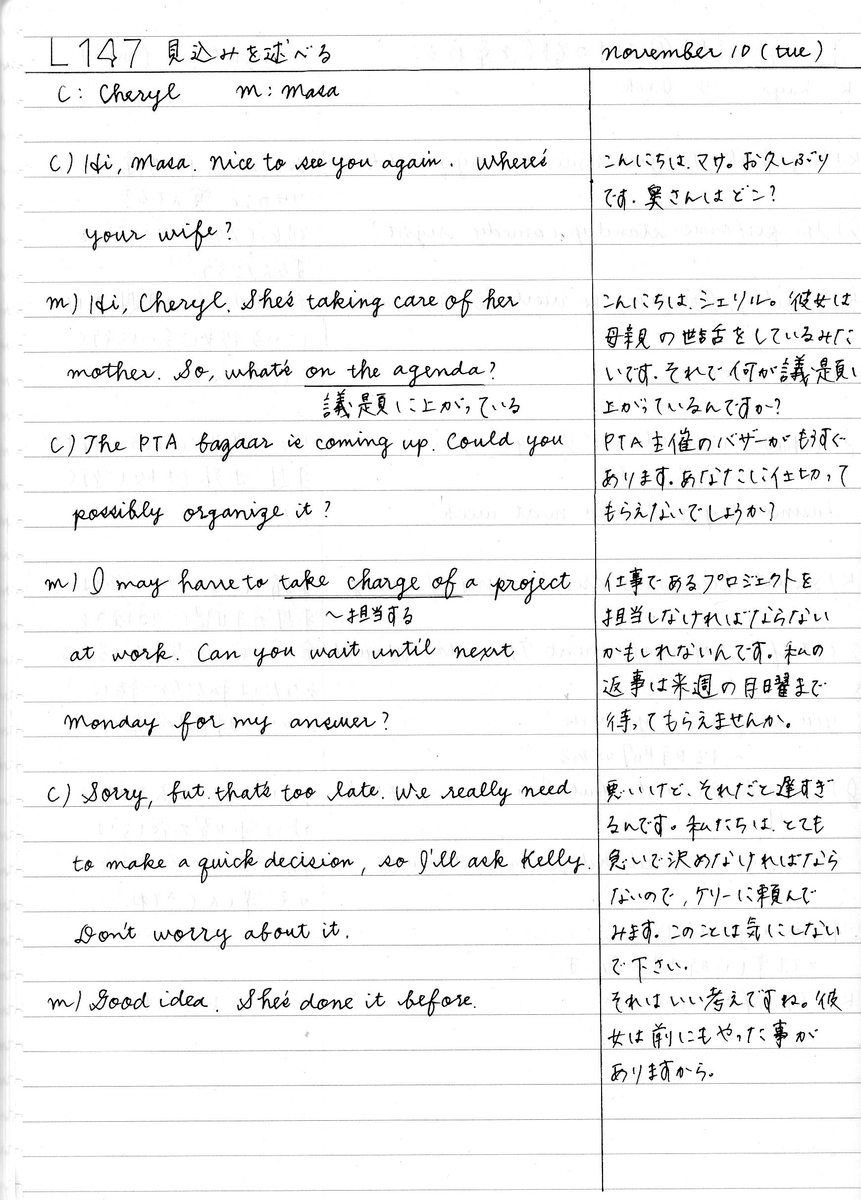 L147 見込みを述べる november 10 (tue)
C: Cheryl m: masa
C) Hi, masa. nice to see you again. Where's
your wife?
m) Hi, Cheryl. She's taking care of her
mother. So, what's on the agenda?
議題に上がっている
C) The PTA bazaar is coming up. Could you
possibly organize it?
m) I may have to take charge of a project
〜担当する
at work. Can you wait until next
monday for my answer?
C) Sorry, but that's too late. We really need
to make a quick decision, so I'll ask Kelly.
Don't worry about it.
m) Good idea. She's done it before.
こんにちは、マサ。お久しぶり
です。奥さんはどこ?
こんにちは、シェリル。彼女は
母親の世話をしているみた
いです。それで何が議題に
上がっているんですか?
PTA主催のバザーがもうすぐ
あります。あなたに仕切って
もらえないでしょうか?
仕事であるプロジェクトを
担当しなければならない
かもしれないんです。私の
返事は来週の月曜まで
待ってもらえませんか。
悪いけど、それだと遅すぎ
るんです。私たちは、とても
急いで決めなければなら
ないので、ケリーに頼んで
みます。このことは気にしない
で下さい。
それはいい考えですね。彼
女は前にもやった事が
ありますから。